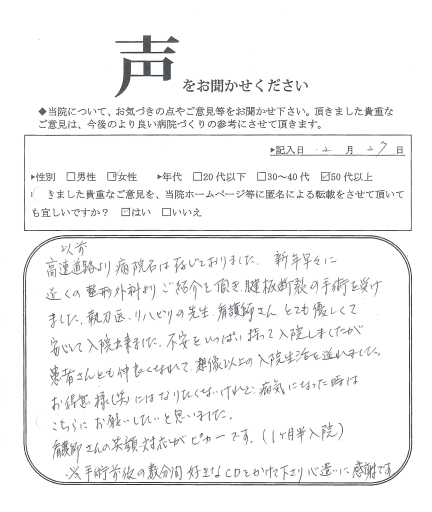 声 をお聞かせください
◆当院について、お気づきの点やご意見等をお聞かせ下さい。頂きました貴重な
ご意見は、今後のより良い病院づくりの参考にさせて頂きます。
▶記入日 2 月 27 日
▶性別 □男性 ☑女性 ▶年代 □20代以下 □30～40代 ☑50代以上
きました貴重なご意見を、当院ホームページ等に匿名による転載をさせて頂いて
も宜しいですか？ ☑はい □いいえ
以前
高速道路より病院名は存じておりました。新年早々に
近くの整形外科よりご紹介を頂き、腱板断裂の手術を受け
ました。執刀医、リハビリの先生、看護師さん とても優しくて
安心して入院出来ました。不安をいっぱい持って入院しましたが
患者さんとも仲良くなれて、想像以上の入院生活を送れました。
お得意様(笑)にはなりたくないけれど、病気になった時は
こちらにお願いしたいと思いました。
看護師さんの笑顔・対応がピカ一です。(1ヶ月半入院)
※手術前後の数分間 好きなCDをかけて下さり心遣いに感謝です